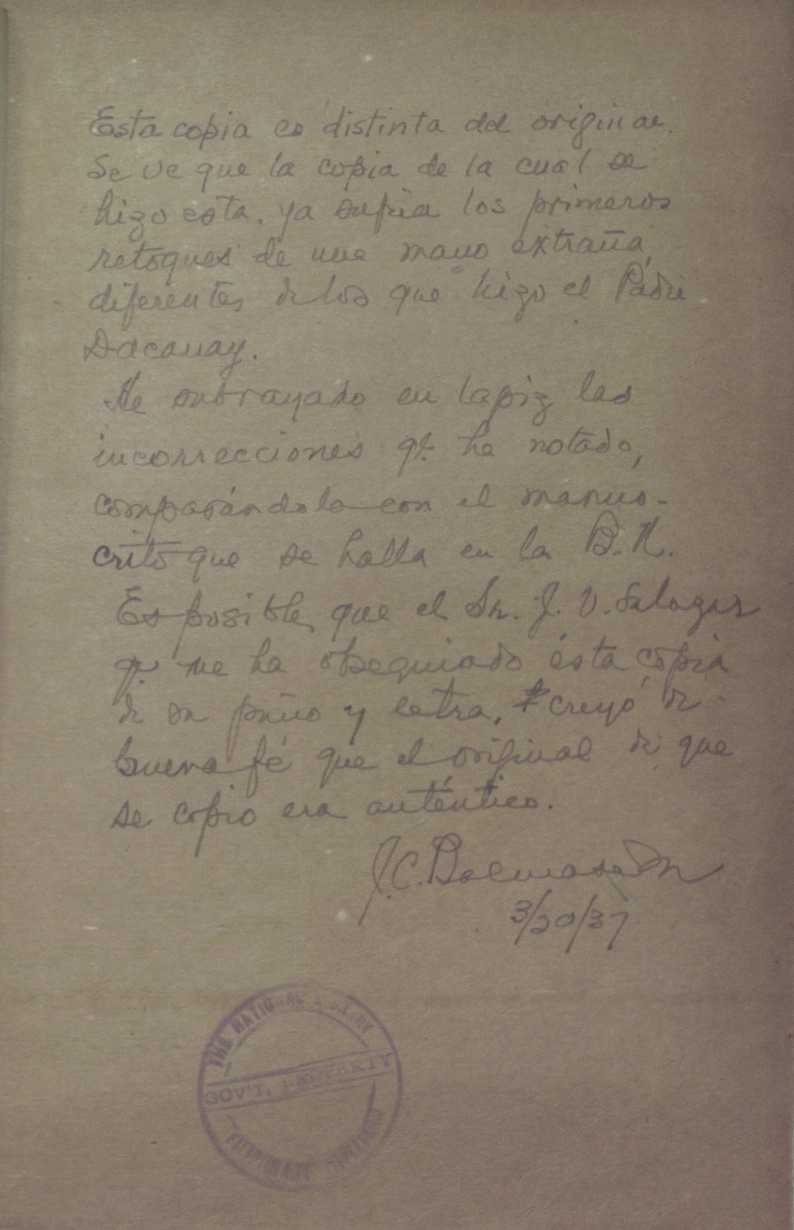 Esta copia es distinta del original.
Se ve que la copia de la cual se
hizo esta, ya sufría los primeros
retoques de una mano extraña,
diferentes de los que hizo el Padre
Dacanay.
He subrayado en lapiz las
incorrecciones qe. he notado,
comparándola con el manus-
crito que se halla en la B. N.
Es posible, que el Sr. J. V. Salazar
qe. me ha obsequiado ésta copia
de su puño y letra, creyó de
buena fé que el original de que
se copió era auténtico.
J. C.
3/20/37
THE NATIONAL